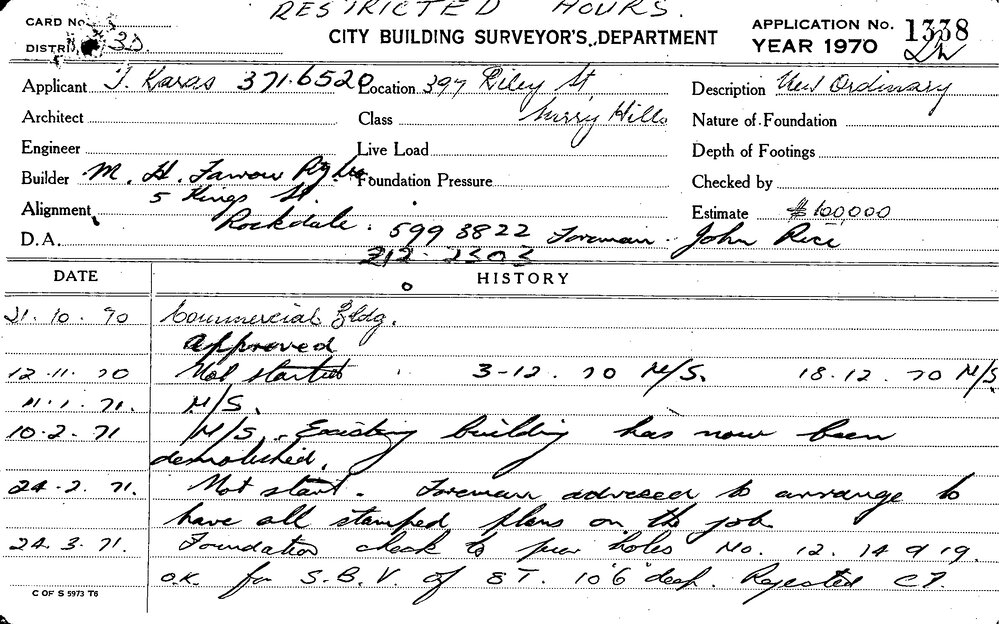 RESTRICTED HOURS.
CARD No.
DISTRICT 3D.
CITY BUILDING SURVEYOR'S DEPARTMENT
APPLICATION No. 1338
YEAR 1970
Applicant T. Karas 371.6520 Location 397 Riley St Description New Ordinary
Architect Class Surry Hills Nature of Foundation
Engineer Live Load Depth of Footings
Builder M. H. Foundation Pressure Checked by
5 Kings St.
Alignment Rockdale. 599 3822 Foreman. John Rice Estimate $100,000
D.A. 212.2303
DATE HISTORY
21.10.70 Commercial Bldg.
Approved
12.11.70 Not started 3-12.70 N/S. 18.12.70 N/S
11.1.71. N/S.
10.2.71 N/S. Existing building has now been
demolished.
24.2.71. Not start. Foreman advised to arrange to
have all stamped plans on the job
24.3.71. Foundation check to pier holes No. 12. 14 9 19.
O.K. for S.B.V. of 8T. 10'6" deep. Rejected
C OF S 5973 T6